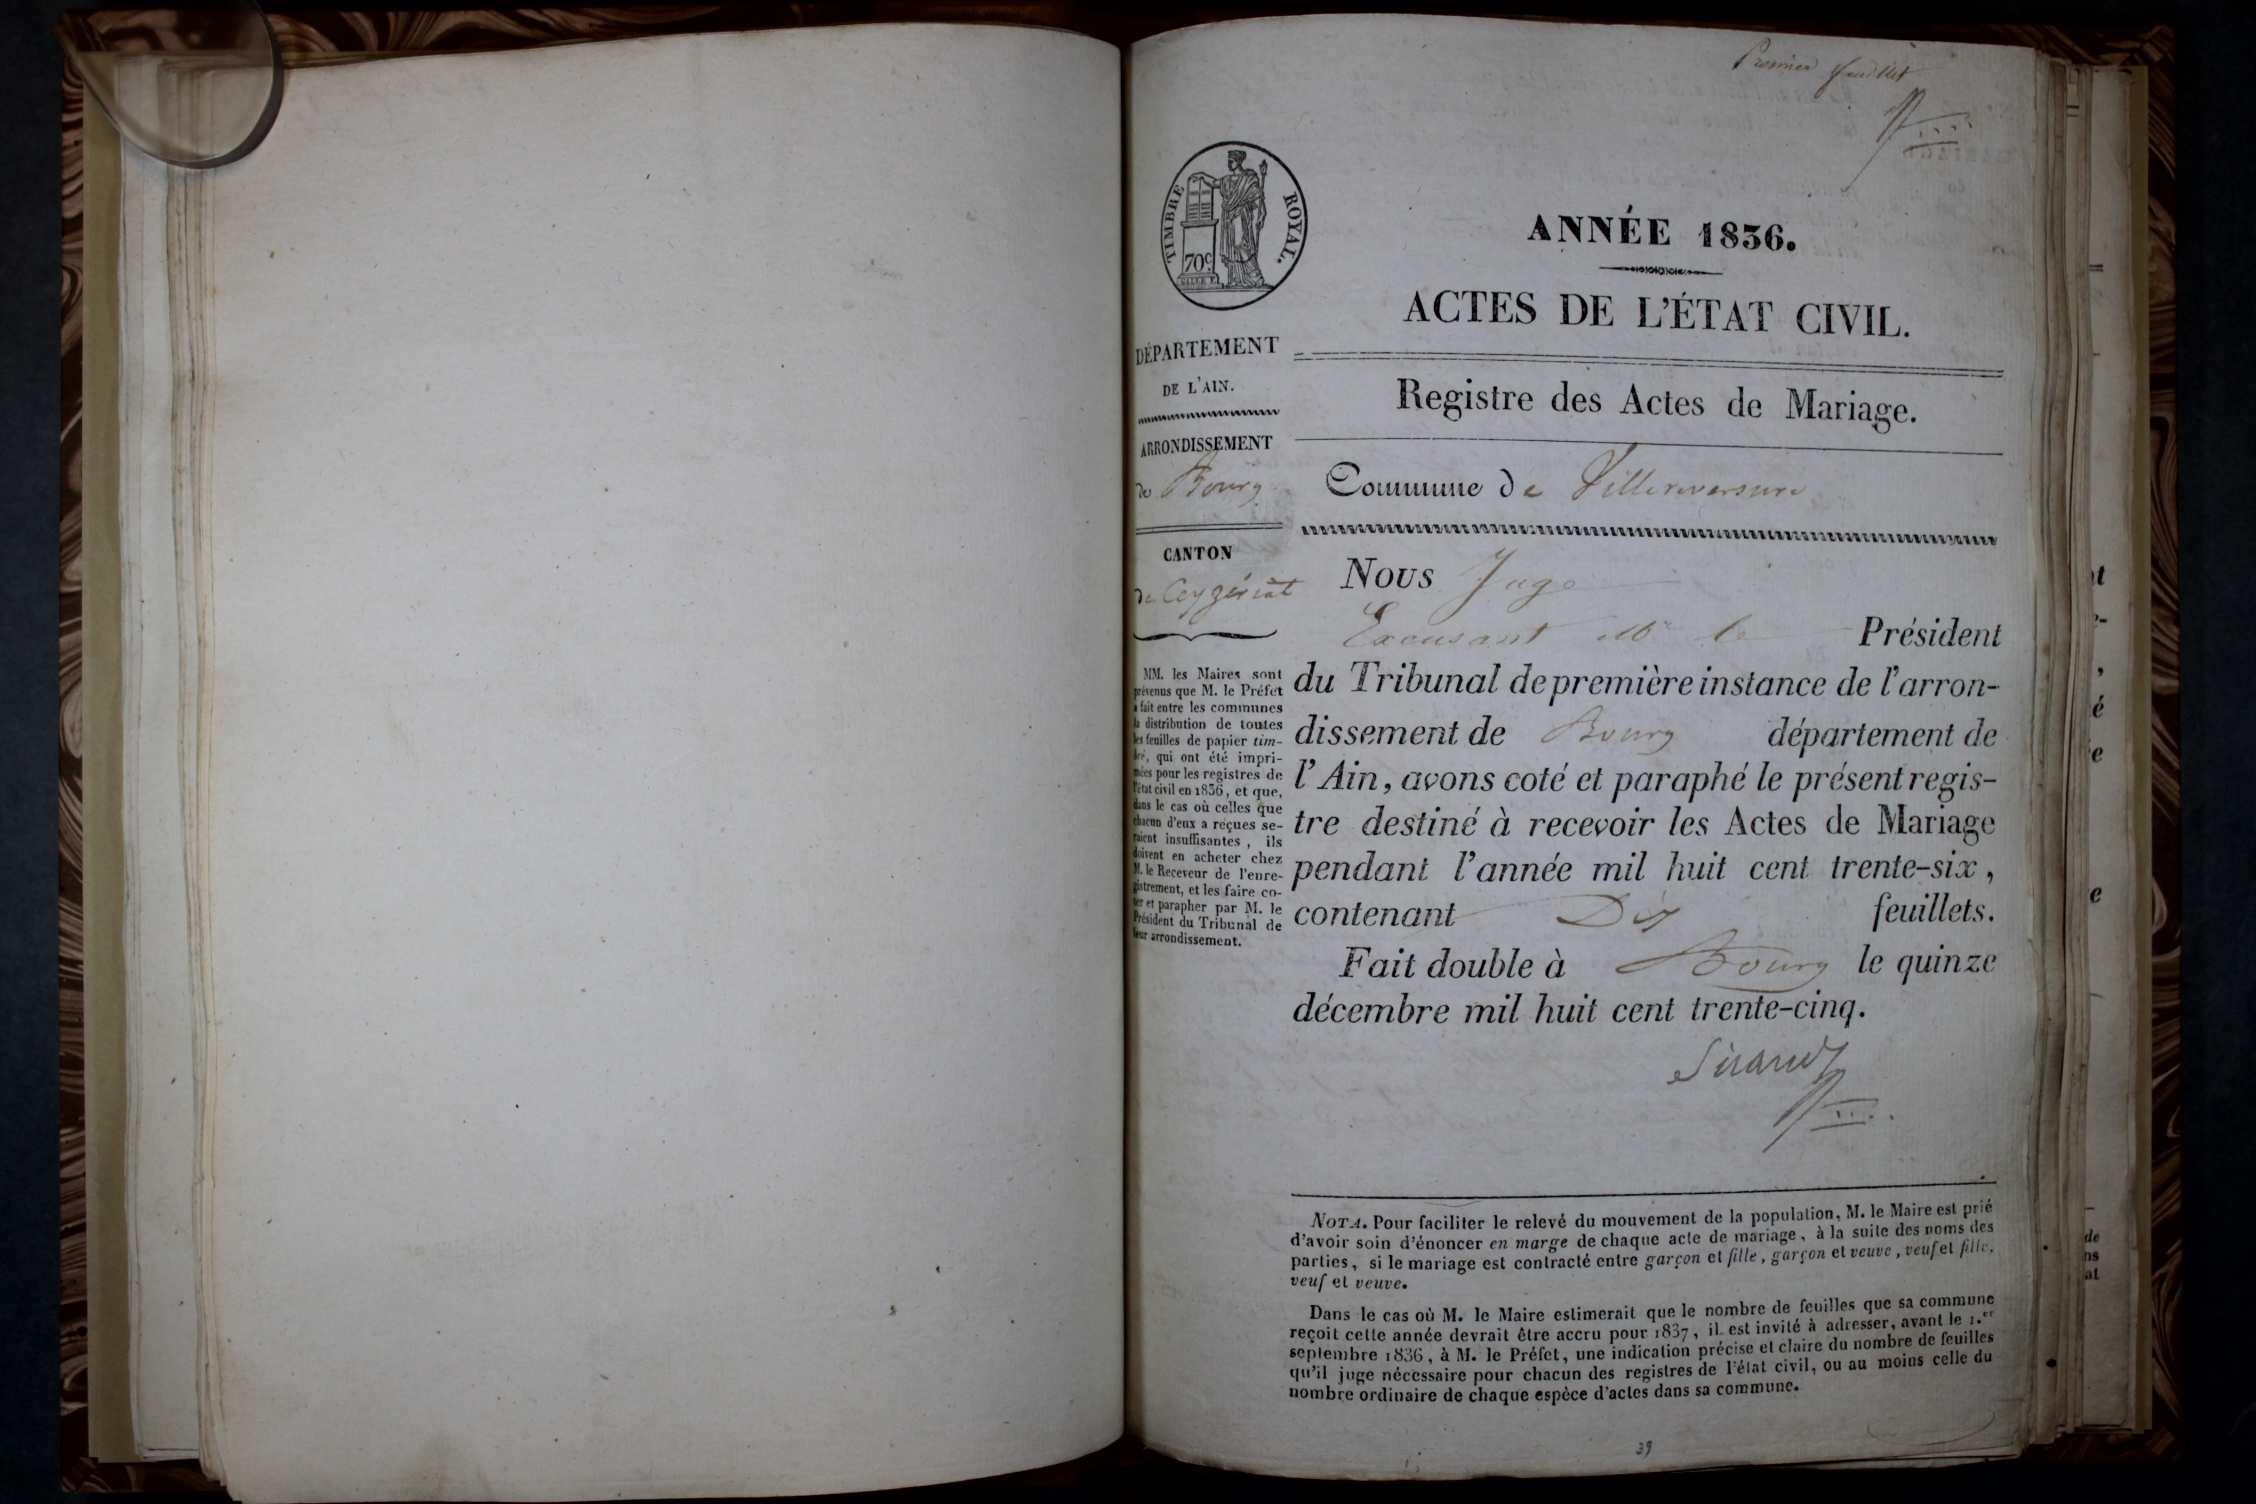 Premier feuillet
TIMBRE ROYAL.
70c
ANNÉE 1836.
ACTES DE L'ÉTAT CIVIL.
Registre des Actes de Mariage.
Commune de Villereversure
DÉPARTEMENT
DE L'AIN.
ARRONDISSEMENT
de Bourg
CANTON
de Ceyzériat
MM. les Maires sont
prévenus que M. le Préfet
a fait entre les communes
la distribution de toutes
les feuilles de papier tim-
bré, qui ont été impri-
mées pour les registres de
l'état civil en 1836, et que,
dans le cas où celles que
chacun d'eux a reçues se-
raient insuffisantes, ils
doivent en acheter chez
M. le Receveur de l'enre-
gistrement, et les faire co-
ter et parapher par M. le
Président du Tribunal de
leur arrondissement.
Nous Juge
Excusant Mr le Président
du Tribunal de première instance de l'arron-
dissement de Bourg département de
l'Ain, avons coté et paraphé le présent regis-
tre destiné à recevoir les Actes de Mariage
pendant l'année mil huit cent trente-six,
contenant Dix feuillets.
Fait double à Bourg le quinze
décembre mil huit cent trente-cinq.
NOTA. Pour faciliter le relevé du mouvement de la population, M. le Maire est prié
d'avoir soin d'énoncer en marge de chaque acte de mariage, à la suite des noms des
parties, si le mariage est contracté entre garçon et fille, garçon et veuve, veuf et fille,
veuf et veuve.
Dans le cas où M. le Maire estimerait que le nombre de feuilles que sa commune
reçoit cette année devrait être accru pour 1837, il est invité à adresser, avant le 1.er
septembre 1836, à M. le Préfet, une indication précise et claire du nombre de feuilles
qu'il juge nécessaire pour chacun des registres de l'état civil, ou au moins celle du
nombre ordinaire de chaque espèce d'actes dans sa commune.
39